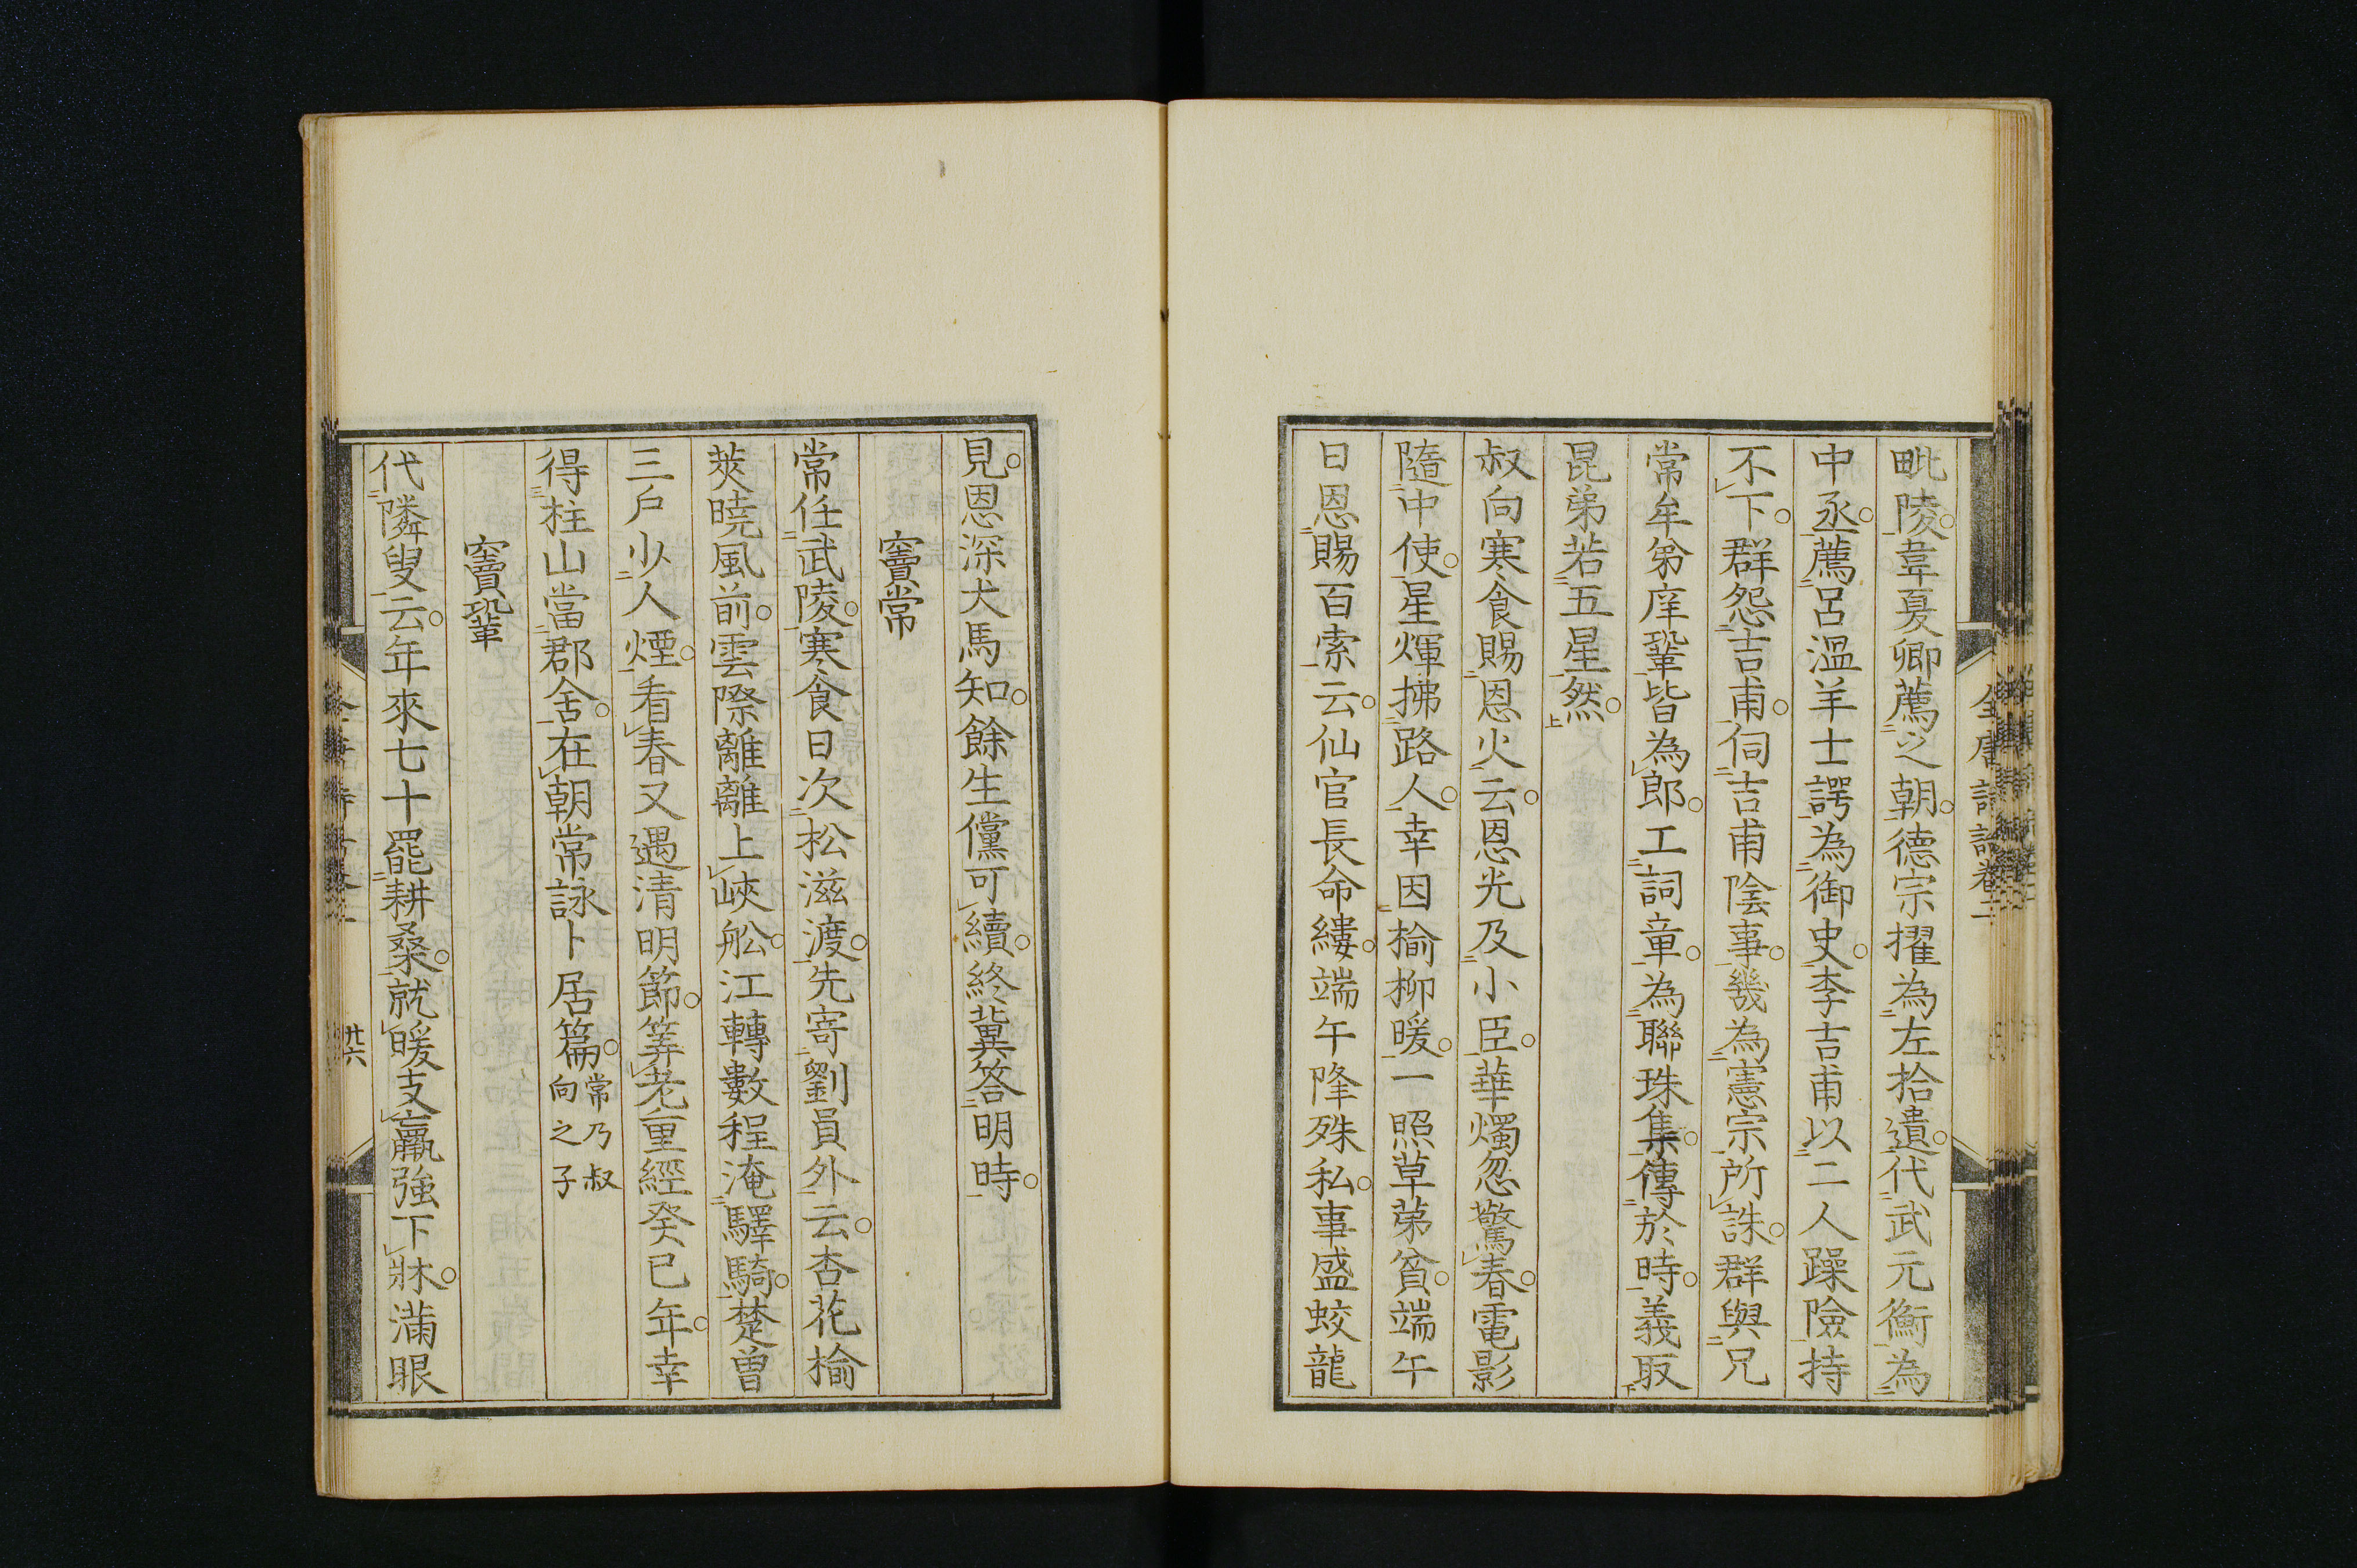 毗陵韋夏卿薦之朝德宗擢為左拾遺代武元衡為
中丞薦呂溫羊士諤為御史李吉甫以二人躁險持
不下群怨吉甫伺吉甫陰事幾為憲宗所誅群與兄
常牟弟庠鞏皆為郎工詞章為聯珠集傳於時義取
昆弟若五星然
叔向寒食賜恩火云恩光及小臣華燭忽驚春電影
隨中使星輝拂路人幸因榆柳暖一照草茅貧端午
日恩賜百索云仙官長命縷端午降殊私事盛蛟龍
見恩深犬馬知餘生儻可續終冀答明時
竇常
常任武陵寒食日次松滋渡先寄劉員外云杏花榆
莢曉風前雲際離離上峽舩江轉數程淹驛騎楚曾
三戶少人煙看春又遇清明節筭老重經癸巳年幸
得柱山當郡舍在朝常詠卜居篇常乃叔
向之子
竇鞏
代隣叟云年來七十罷耕桑就暖支羸強下牀滿眼
廿六